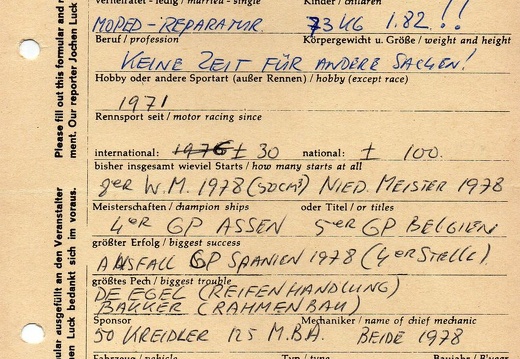 Verheiratet - ledig / married - single Kinder / children
MOPED-REPARATUR. 73 KG 1.82!!
Beruf / profession Körpergewicht u. Größe / weight and height
KEINE ZEIT FÜR ANDERE SACHEN!
Hobby oder andere Sportart (außer Rennen) / hobby (except race)
1971
Rennsport seit / motor racing since
international: 1976 ± 30 national: ± 100.
bisher insgesamt wieviel Starts / how many starts at all
8er W.M. 1978 (50cm³) NIED. MEISTER 1978
Meisterschaften / champion ships oder Titel / or titles
4er GP ASSEN 5er GP BELGIEN
größter Erfolg / biggest success
AUSFALL GP SPANIEN 1978 (4er STELLE).
größtes Pech / biggest trouble
DE EGEL (REIFENHANDLUNG)
BAKKER (RAHMENBAU)
Sponsor Mechaniker / name of chief mechanic
50 KREIDLER 125 M.B.A. BEIDE 1978
Fahrzeug / vehicle Typ / type Baujahr / B'year
Please fill out this formular and r
ment. Our reporter Jochen Luck
mular ausgefüllt an den Veranstalter
en Luck bedankt sich im voraus.